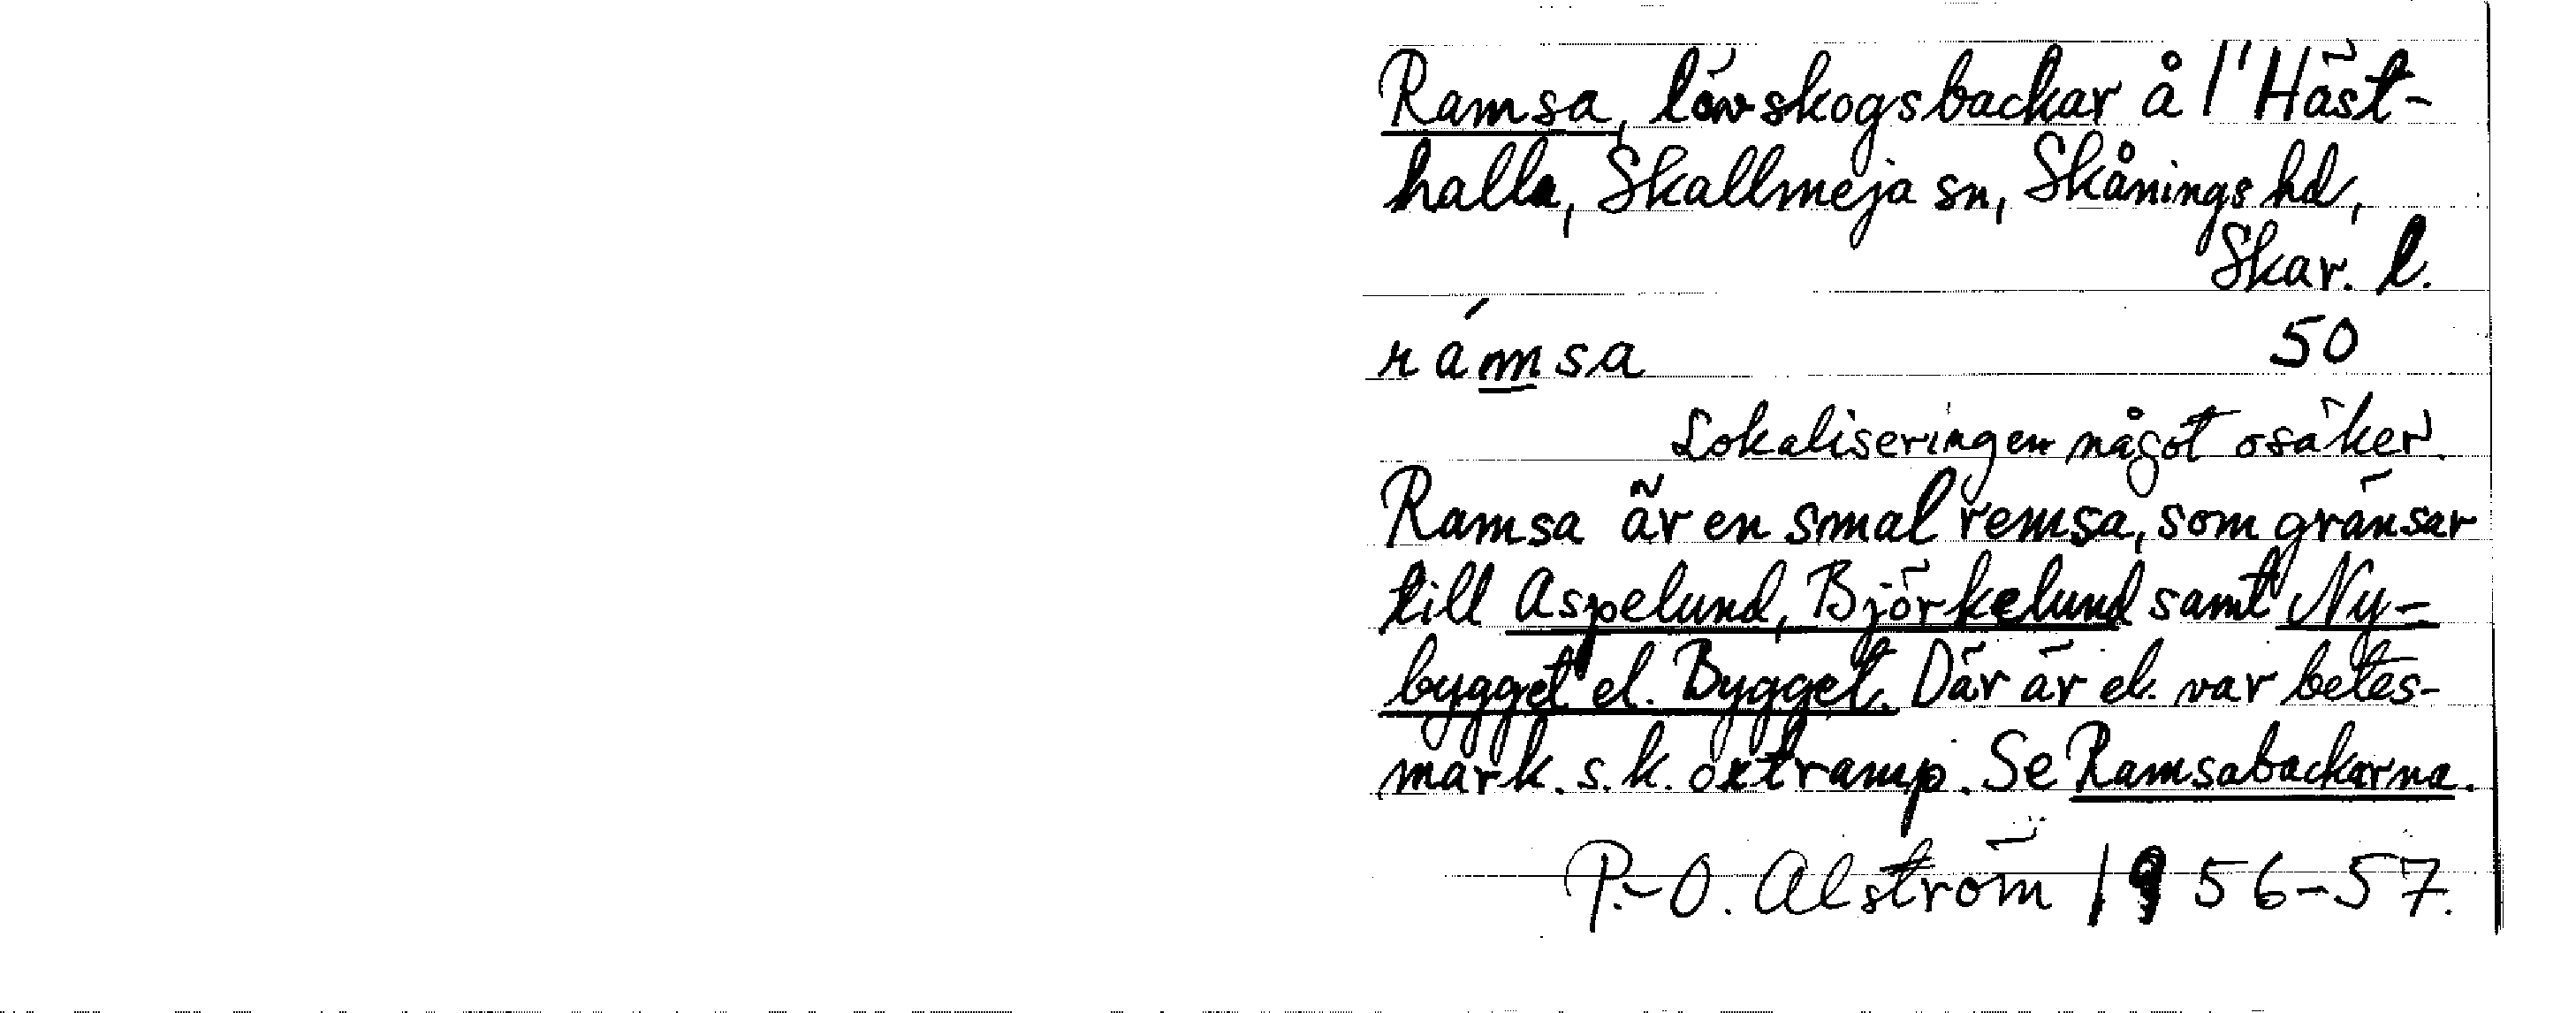 Ramsa, lövskogsbackar å 1' Häst-
halla, Skallmeja sn, Skånings hd,
Skar. l.
rámsa 50
Lokaliseringen något osäker.
Ramsa är en smal remsa, som gränsar
till Aspelund, Björkelund samt Ny-
bygget el. Bygget. Där är el. var betes-
mark. s.k. oxtramp. Se Ramsabackarna.
P.-O. Alström 1956-57.